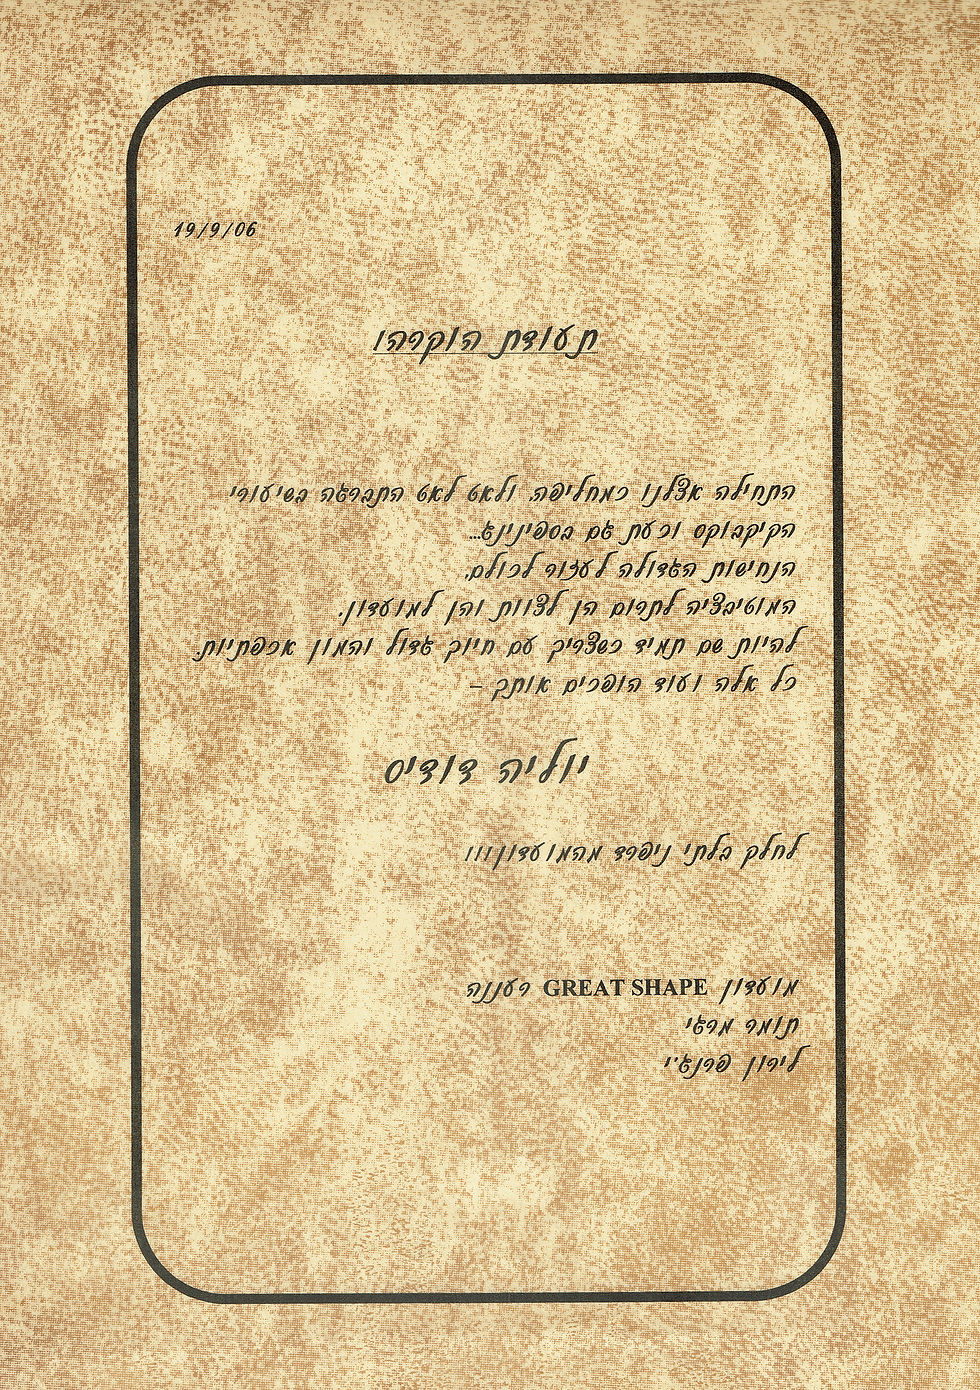 19/9/06
תעודת הוקרהו
התחילה אצלנו כמחליפה, ולאט לאט התברגה בשיעורי
הקיקבוקס וכעת גם בספינינג...
הנחישות הגדולה לעזור לכולם,
המוטיבציה לתרום הן לצוות והן למועדון.
להיות שם תמיד כשצריך עם חיוך גדול והמון אכפתיות.
כל אלה ועוד הופכים אותך –
יוליה דודיס
לחלק בלתי ניפרד מהמועדון!!!
מועדון GREAT SHAPE רעננה
תומר מרגי
לירון פרנג'י